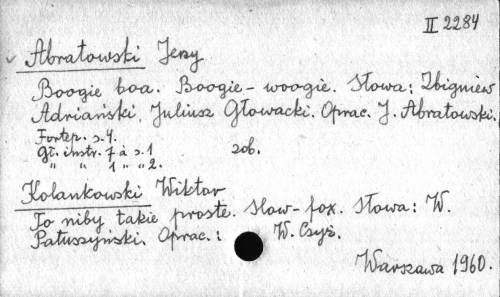 II 2284
Abratowski Jerzy
Boogie boa. Boogie-woogie. Słowa: Zbigniew
Adriański, Juliusz Głowacki. Oprac. J. Abratowski.
Fortep. s.4.
Gł. instr. 7 à s.1 zob.
" " 1 " " 2.
Kolankowski Wiktor
To niby takie proste. Slow-fox. Słowa: W.
Patuszyński. Oprac.: W. Czyż.
Warszawa 1960.